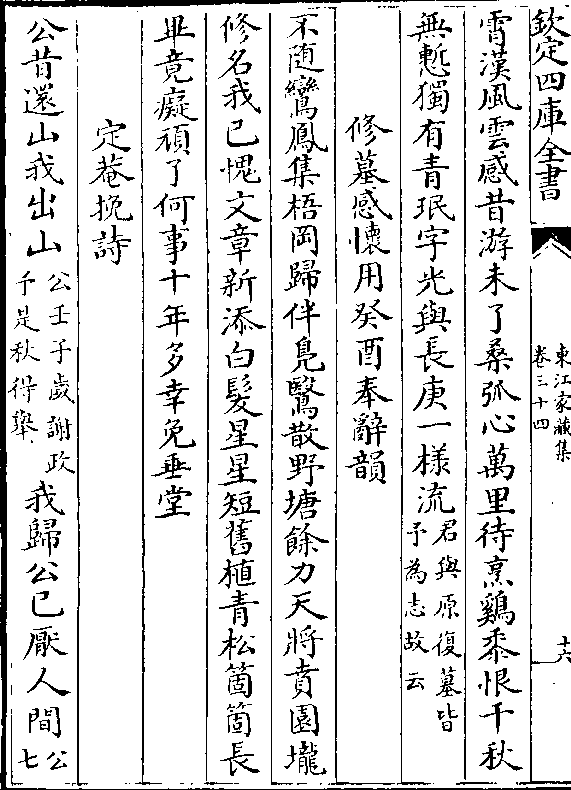 欽定四庫全書
東江家藏集
卷三十四
十六
霄漢風雲感昔游未了桑弧心萬里待烹鷄黍恨千秋
無慙獨有青珉字光與長庚一樣流君與原復墓皆予為志故云
修墓感懷用癸酉奉辭韻
不随鸞鳳集梧岡歸伴鳧鷖散野塘餘力天將賁園壠
修名我已愧文章新添白髮星星短舊植青松箇箇長
畢竟癡頑了何事十年多幸免垂堂
定菴挽詩
公昔還山我出山公壬子歲謝政于是秋得舉我歸公已厭人間公七